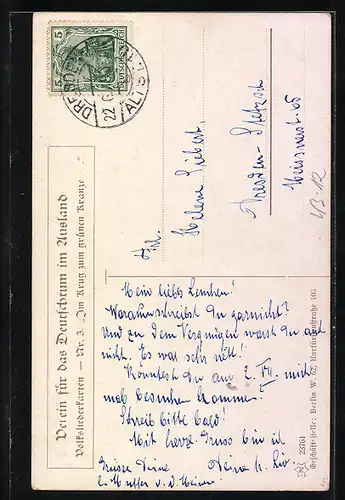 Verein für das Deutschtum im Ausland
Volksliederkarten — Nr. 3. „Im Krug zum grünen Kranze..."
5 DEUTSCHES REICH 5
DRESDEN
ALTST.
22
Frl.
Helene Liebert,
Dresden-
Meissnerst. 65
VB.12
Mein liebes Lenchen!
Warum schreibst Du garnicht?
Und zu dem Vergnügen warst Du auch
nicht. Es war sehr nett!
Könntest Du am 2. VII. mich
mal besuchen kommen?
Schreib bitte bald!
Mit herzl. Gruss bin ich
Grüsse Deine Deine
l. Mutter v. d. Meinen
23761
Geschäftsstelle: Berlin W. 62, Kurfürstenstraße 105